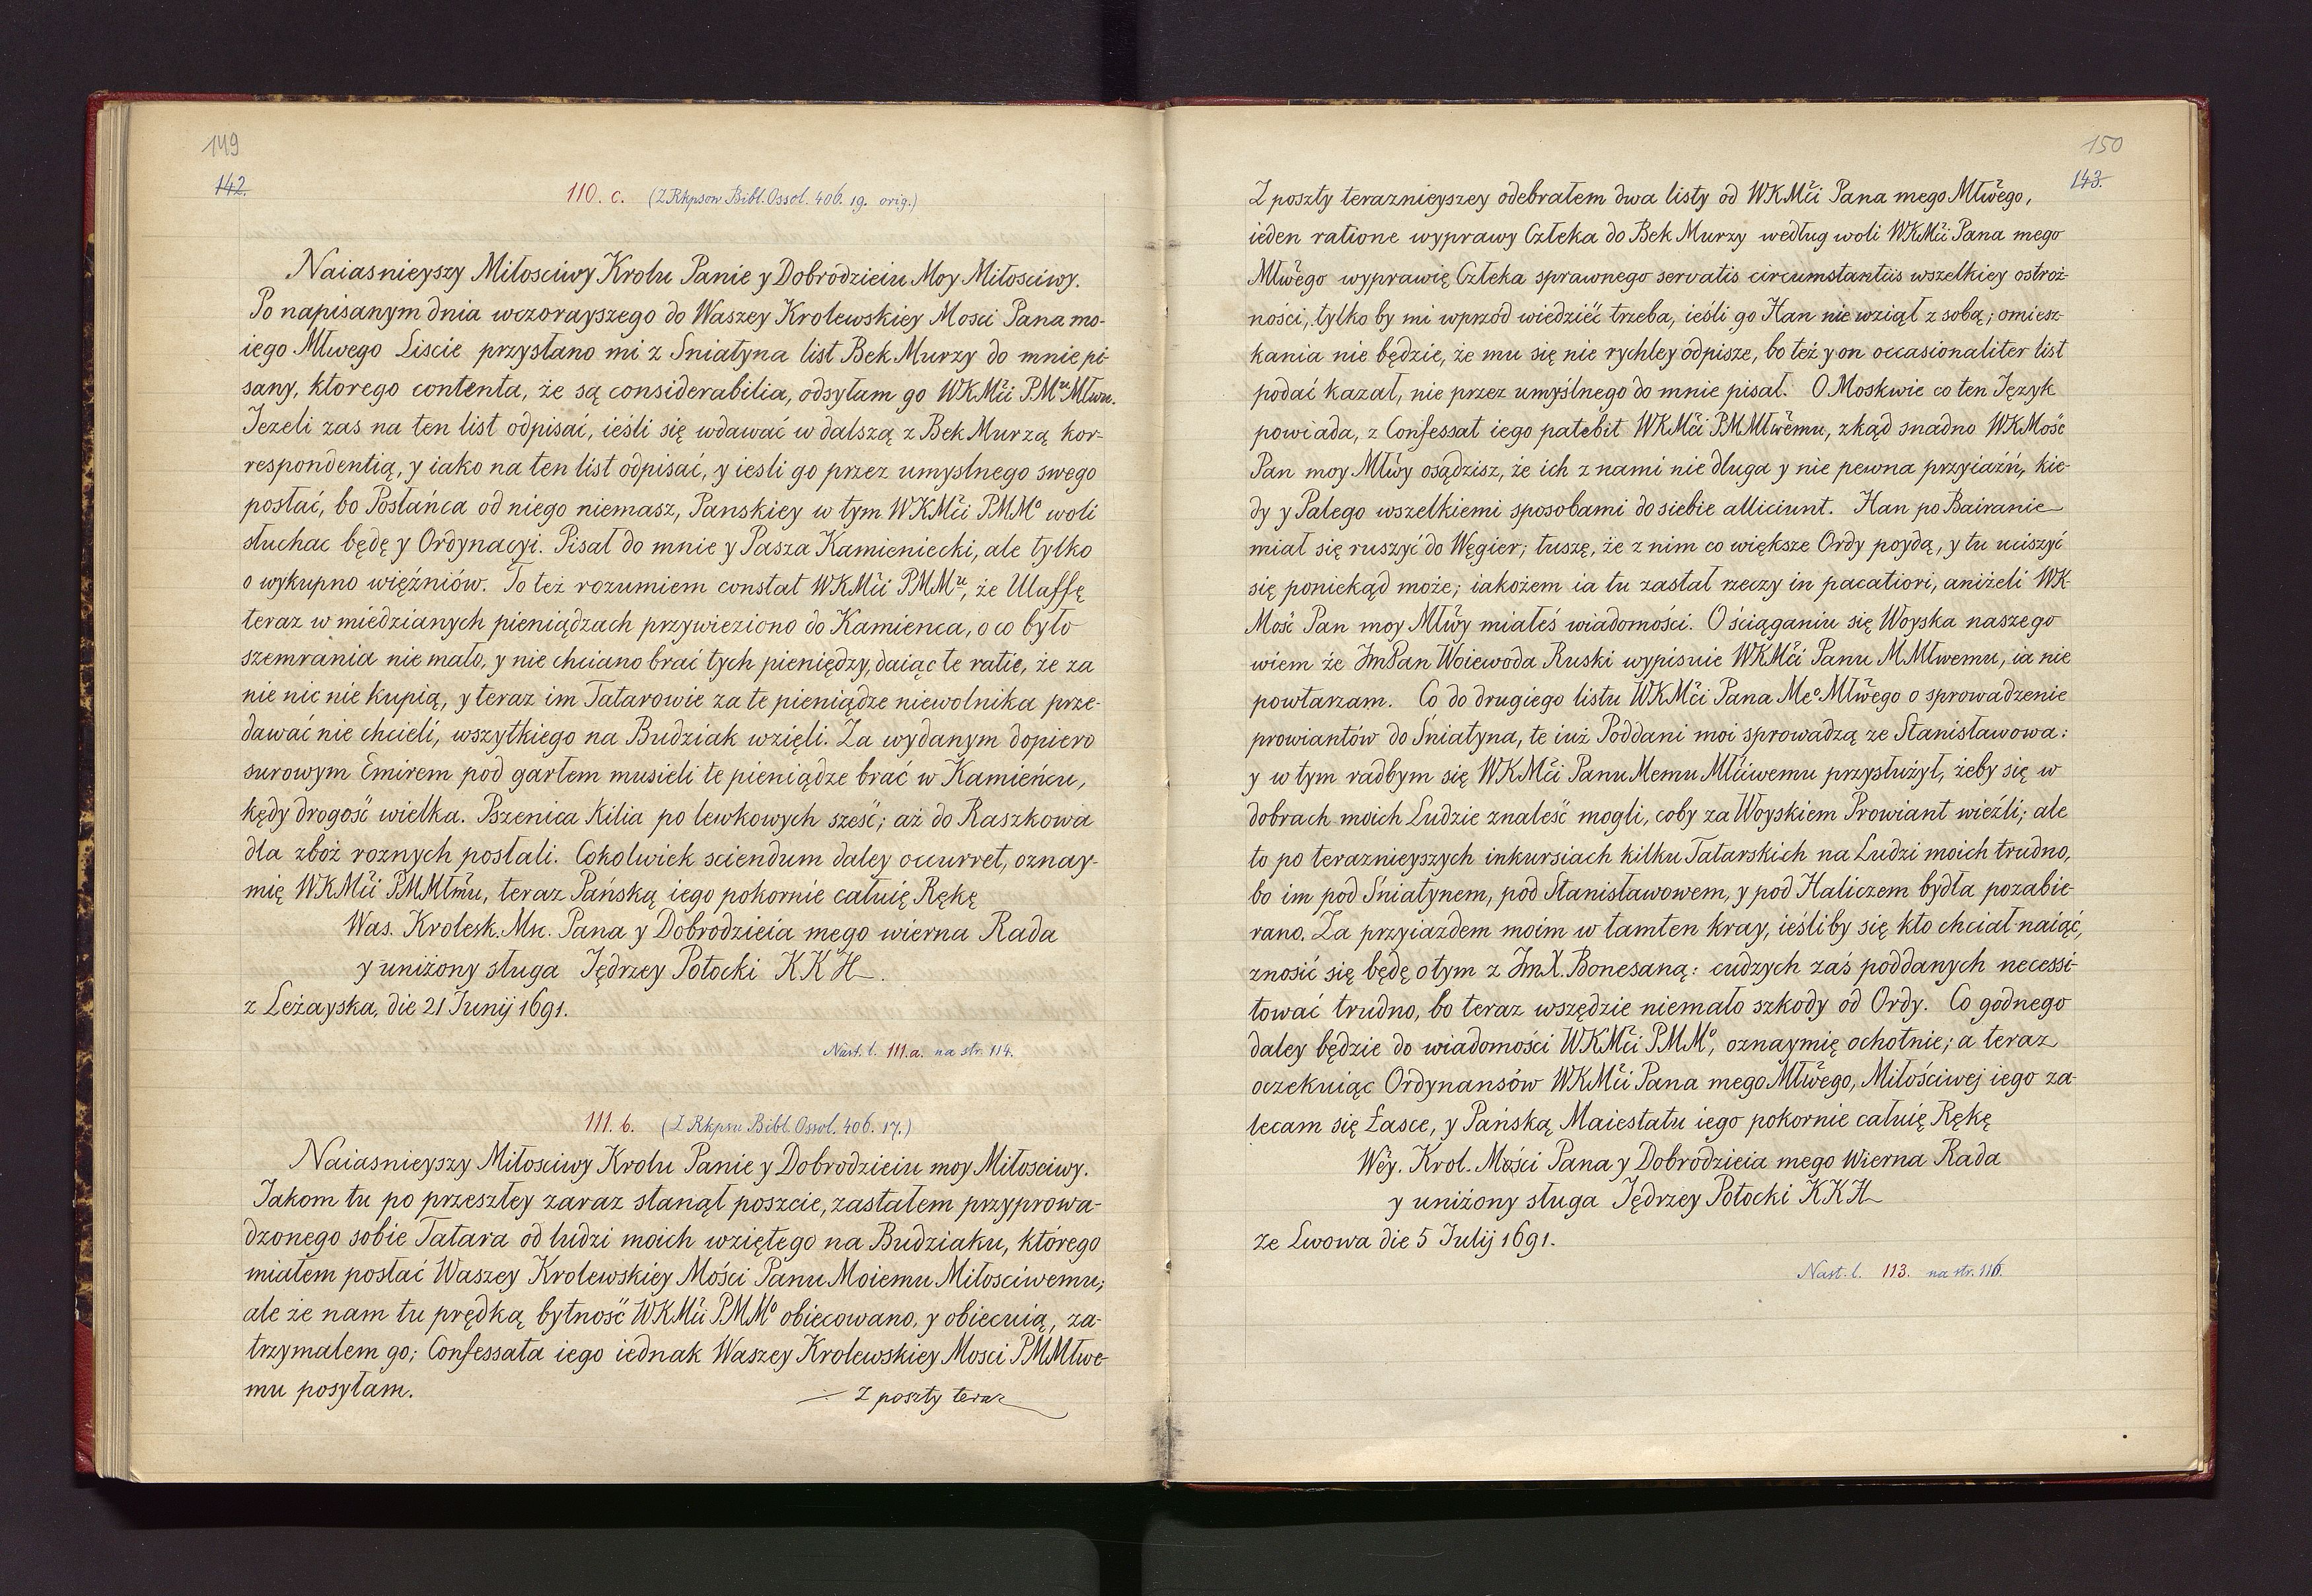 149
142.
110. c. (Z Rkpsow Bibl. Ossol. 406. 19. orig.)
Naiasnieyszy Miłosciwy Krolu Panie y Dobrodzieiu Moy Miłosciwy.
Po napisanym dnia wczorayszego do Waszey Krolewskiey Mosci Pana mo-
iego Młwego Liscie przysłano mi z Sniatyna list Bek Murzy do mnie pi-
sany, ktorego contenta, że są considerabilia, odsyłam go WKMći PMᵘ Młwu.
Jezeli zas na ten list odpisać, ieśli się wdawać w dalszą z Bek Murzą kor-
respondentią, y iako na ten list odpisać, y iesli go przez umyslnego swego
posłać, bo Posłańca od niego niemasz, Panskiey w tym WKMći PMMº woli
słuchac będę y Ordynacyi. Pisał do mnie y Pasza Kamieniecki, ale tylko
o wykupno więźniów. To też rozumiem constat WKMći PMMᵘ, że Ulaffę
teraz w miedzianych pieniądzach przywieziono do Kamienca, o co było
szemrania nie mało, y nie chciano brać tych pieniędzy, daiąc te ratie, że za
nie nic nie kupią, y teraz im Tatarowie za te pieniądze niewolnika prze-
dawać nie chcieli, wszytkiego na Budziak wzięli. Za wydanym dopiero
surowym Emirem pod garłem musieli te pieniądze brać w Kamieńcu,
kędy drogość wielka. Pszenica Kilia po lewkowych sześć; aż do Raszkowa
dla zbóż roznych postali. Cokolwiek sciendum daley occurret, oznay-
mię WKMći PMMłmu, teraz Pańską iego pokornie całuię Rękę
Was. Krolesk. Mn. Pana y Dobrodzieia mego wierna Rada
y uniżony sługa Jędrzey Potocki KKH.
z Leżayska, die 21 Junij 1691.
Nast. l. 111.a. na str. 114.
111. b. (Z Rkpsu Bibl. Ossol. 406. 17.)
Naiasnieyszy Miłosciwy Krolu Panie y Dobrodzieiu moy Miłosciwy.
Jakom tu po przeszłey zaraz stanął poszcie, zastałem przyprowa-
dzonego sobie Tatara od ludzi moich wziętego na Budziaku, którego
miałem posłać Waszey Krolewskiey Mości Panu Moiemu Miłosciwemu;
ale że nam tu prędką bytność WKMći PMMº obiecowano, y obiecuią, za-
trzymałem go; Confessata iego iednak Waszey Krolewskiey Mosci PMMłwe-
mu posyłam.
Z poszty teraz
150
143.
Z poszty teraznieyszey odebrałem dwa listy od WKMći Pana mego Młwego,
ieden ratione wyprawy Człeka do Bek Murzy według woli WKMći Pana mego
Młwego wyprawię Człeka sprawnego servatis circumstantiis wszelkiey ostroż-
ności, tylko by mi wprzód wiedzieć trzeba, ieśli go Han nie wziął z sobą; omiesz-
kania nie będzie, że mu się nie rychley odpisze, bo też y on occasionaliter list
podać kazał, nie przez umyślnego do mnie pisał. O Moskwie co ten Język
powiada, z Confessat iego patebit WKMći PMMłwemu, zkąd snadno WKMość
Pan moy Młwy osądzisz, że ich z nami nie długa y nie pewna przyiaźń, kie-
dy y Palego wszelkiemi sposobami do siebie alliciunt. Han po Bairanie
miał się ruszyć do Węgier; tuszę, że z nim co większe Ordy poydą, y tu uciszyć
się poniekąd może; iakożem ia tu zastał rzeczy in pacatiori, aniżeli WK-
Mość Pan moy Młwy miałeś wiadomości. O ściąganiu się Woyska naszego
wiem że JmPan Woiewoda Ruski wypisuie WKMći Panu MMłwemu, ia nie
powtarzam. Co do drugiego listu WKMći Pana Meº Młwego o sprowadzenie
prowiantów do Śniatyna, te iuż Poddani moi sprowadzą ze Stanisławowa:
y w tym radbym się WKMći Panu Memu Młćiwemu przysłużył, żeby się w
dobrach moich Ludzie znaleść mogli, coby za Woyskiem Prowiant wieźli; ale
to po teraznieyszych inkursiach kilku Tatarskich na Ludzi moich trudno,
bo im pod Śniatynem, pod Stanisławowem, y pod Haliczem bydła pozabie-
rano. Za przyiazdem moim w tamten kray, ieśliby się kto chciał naiąć,
znosić się będę o tym z JmX. Bonesaną: cudzych zaś poddanych necessi-
tować trudno, bo teraz wszędzie niemało szkody od Ordy. Co godnego
daley będzie do wiadomości WKMći PMMº, oznaymię ochotnie; a teraz
oczekuiąc Ordynansów WKMći Pana mego Młwego, Miłościwej iego za-
lecam się Łasce, y Pańską Maiestatu iego pokornie całuię Rękę
Wey. Krol. Mości Pana y Dobrodzieia mego Wierna Rada
y uniżony sługa Jędrzey Potocki KKH
ze Lwowa die 5 Julij 1691.
Nast. l. 113. na str. 116.